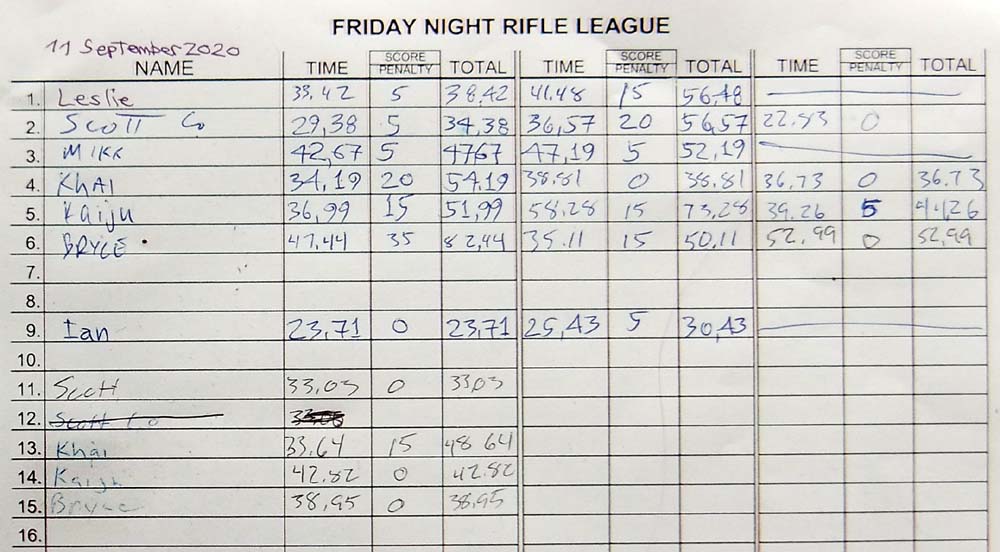 FRIDAY NIGHT RIFLE LEAGUE
11 September 2020
NAME TIME SCORE PENALTY TOTAL TIME SCORE PENALTY TOTAL TIME SCORE PENALTY TOTAL
1. Leslie 33.42 5 38,42 41.48 15 56,48
2. Scott Co 29,38 5 34,38 36,57 20 56,57 22.83 0
3. MIKK 42,67 5 4767 47,19 5 52,19
4. KHAI 34,19 20 54.19 38.81 0 38.81 36.73 0 36.73
5. Kaiju 36,99 15 51,99 58.28 15 73,28 39.26 5 44,26
6. BRYCE 47.44 35 82,44 35.11 15 50,11 52,99 0 52,99
7.
8.
9. Ian 23,71 0 23,71 25,43 5 30,43
10.
11. Scott 33,03 0 33,03
12. Scott Co
13. Khai 33.64 15 48 64
14. Kaiju 42.82 0 42.82
15. Bryce 38,95 0 38,95
16.